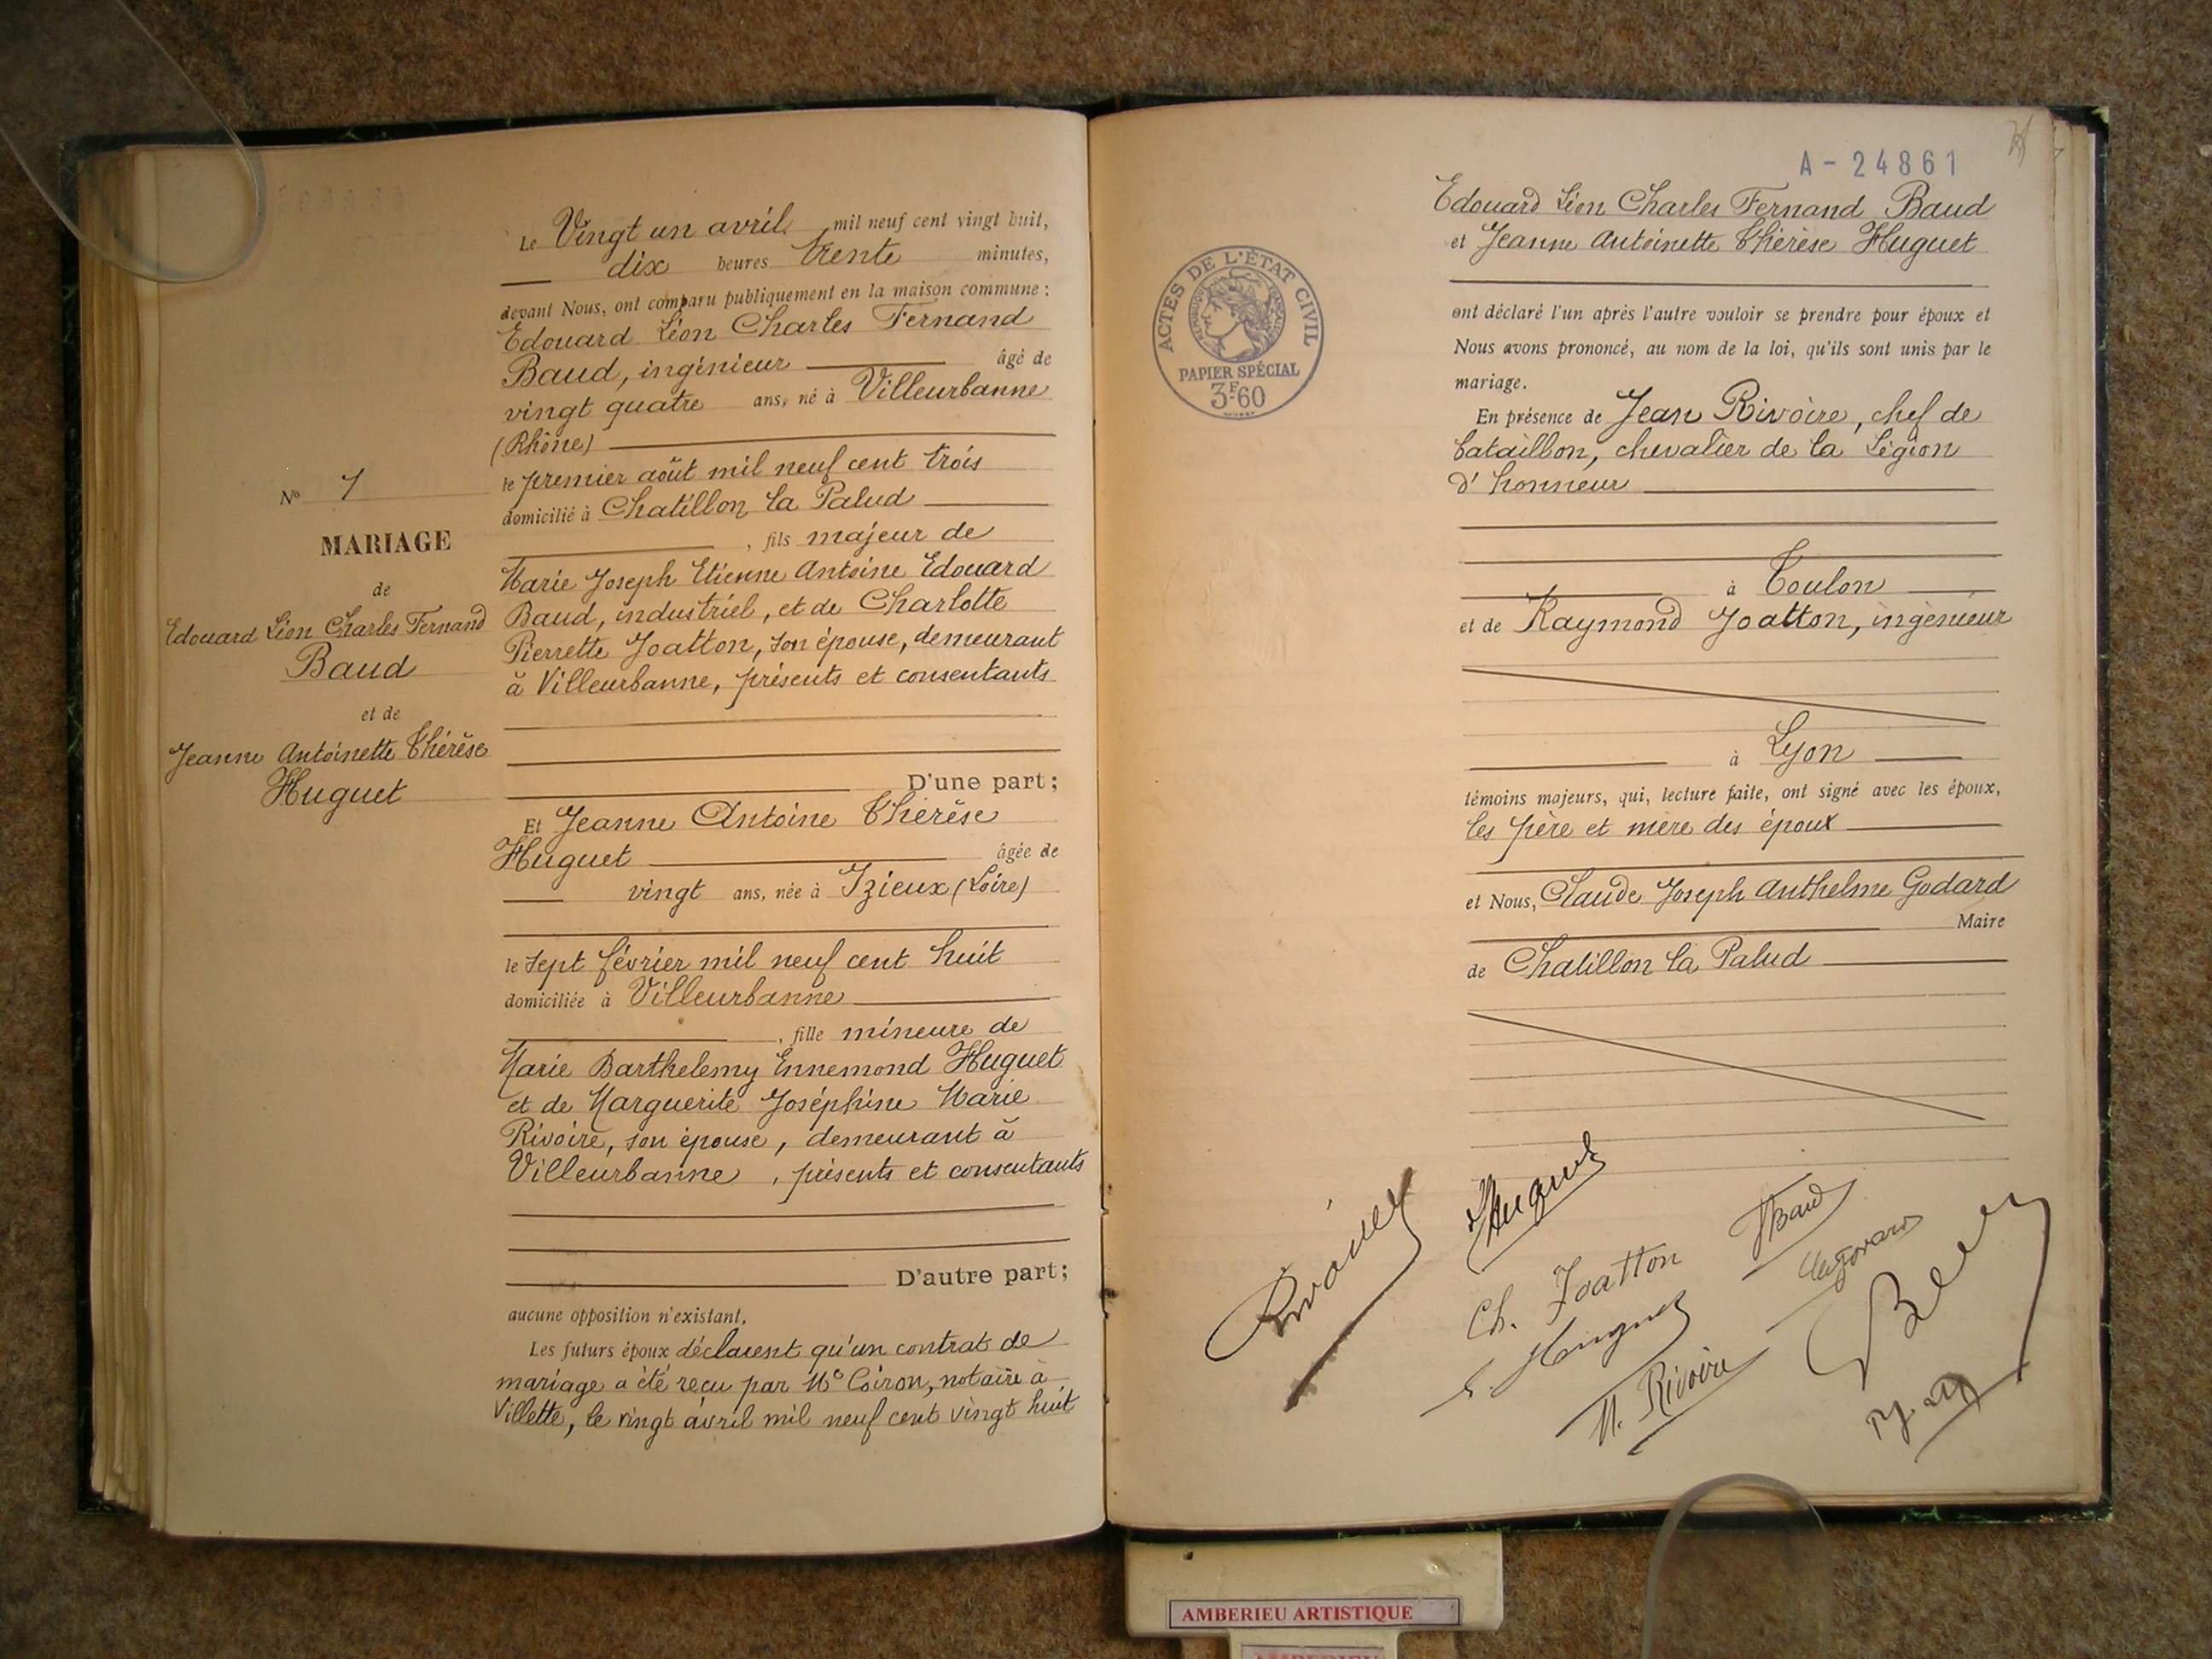 Le Vingt un avril mil neuf cent vingt huit,
dix heures trente minutes,
devant Nous, ont comparu publiquement en la maison commune :
Edouard Léon Charles Fernand
Baud, ingénieur âgé de
vingt quatre ans, né à Villeurbanne
(Rhône)
le premier août mil neuf cent trois
domicilié à Chatillon la Palud
, fils majeur de
Marie Joseph Etienne Antoine Edouard
Baud, industriel, et de Charlotte
Pierrette Joatton, son épouse, demeurant
à Villeurbanne, présents et consentants
D'une part ;
Et Jeanne Antoine Thérèse
Huguet âgée de
vingt ans, née à Izieux (Loire)
le sept février mil neuf cent huit
domiciliée à Villeurbanne
, fille mineure de
Marie Barthelemy Ennemond Huguet
et de Marguerite Joséphine Marie
Rivoire, son épouse, demeurant à
Villeurbanne, présents et consentants
D'autre part ;
aucune opposition n'existant,
Les futurs époux déclarent qu'un contrat de
mariage a été reçu par Me Coiron, notaire à
Villette, le vingt avril mil neuf cent vingt huit
No 7
MARIAGE
de
Edouard Léon Charles Fernand
Baud
et de
Jeanne Antoinette Thérèse
Huguet
A - 24861
Edouard Léon Charles Fernand Baud
et Jeanne Antoinette Thérèse Huguet
ont déclaré l'un après l'autre vouloir se prendre pour époux et
Nous avons prononcé, au nom de la loi, qu'ils sont unis par le
mariage.
En présence de Jean Rivoire, chef de
bataillon, chevalier de la Légion
d'honneur
à Toulon
et de Raymond Joatton, ingénieur
à Lyon
témoins majeurs, qui, lecture faite, ont signé avec les époux,
les père et mère des époux
et Nous, Claude Joseph Anthelme Godard
Maire
de Chatillon la Palud
ACTES DE L'ÉTAT CIVIL
PAPIER SPÉCIAL
3F60
Huguet
Baud
Ch. Joatton
M. Rivoire
AMBERIEU ARTISTIQUE